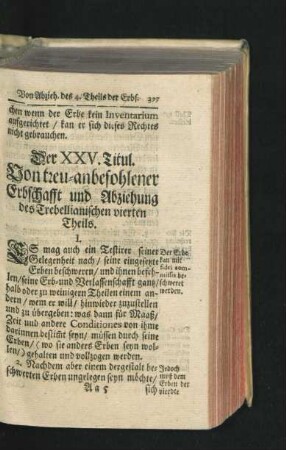 Von Abzieh. des 4. Theils der Erbs. 377
chen wenn der Erbe kein Inventarium
aufgerichtet / kan er sich dieses Rechtes
nicht gebrauchen.
Der XXV. Titul.
Von treu-anbefohlener
Erbschafft und Abziehung
des Trebellianischen vierten
Theils.
I.
ES mag auch ein Testirer seiner
Gelegenheit nach / seine eingesetzte
Erben beschweren / und ihnen befeh-
len / seine Erb-und Verlassenschafft gantz /
halb oder zu weinigern Theilen einem an-
dern / wem er will / hinwieder zuzustellen
und zu übergeben: was dann für Maaß /
Zeit und andere Conditiones von ihme
darinnen bestimt seyn / müssen durch seine
Erben / ( wo sie anders Erben seyn wol-
len / ) gehalten und vollzogen werden.
2. Nachdem aber einem dergestalt be-
schwerten Erben ungelegen seyn möchte /
Der Erbe
kan mit
fidei com-
missis be-
schweret
werden.
Jedoch
muß dem
Erben der
vierdte
Aa 5
sich